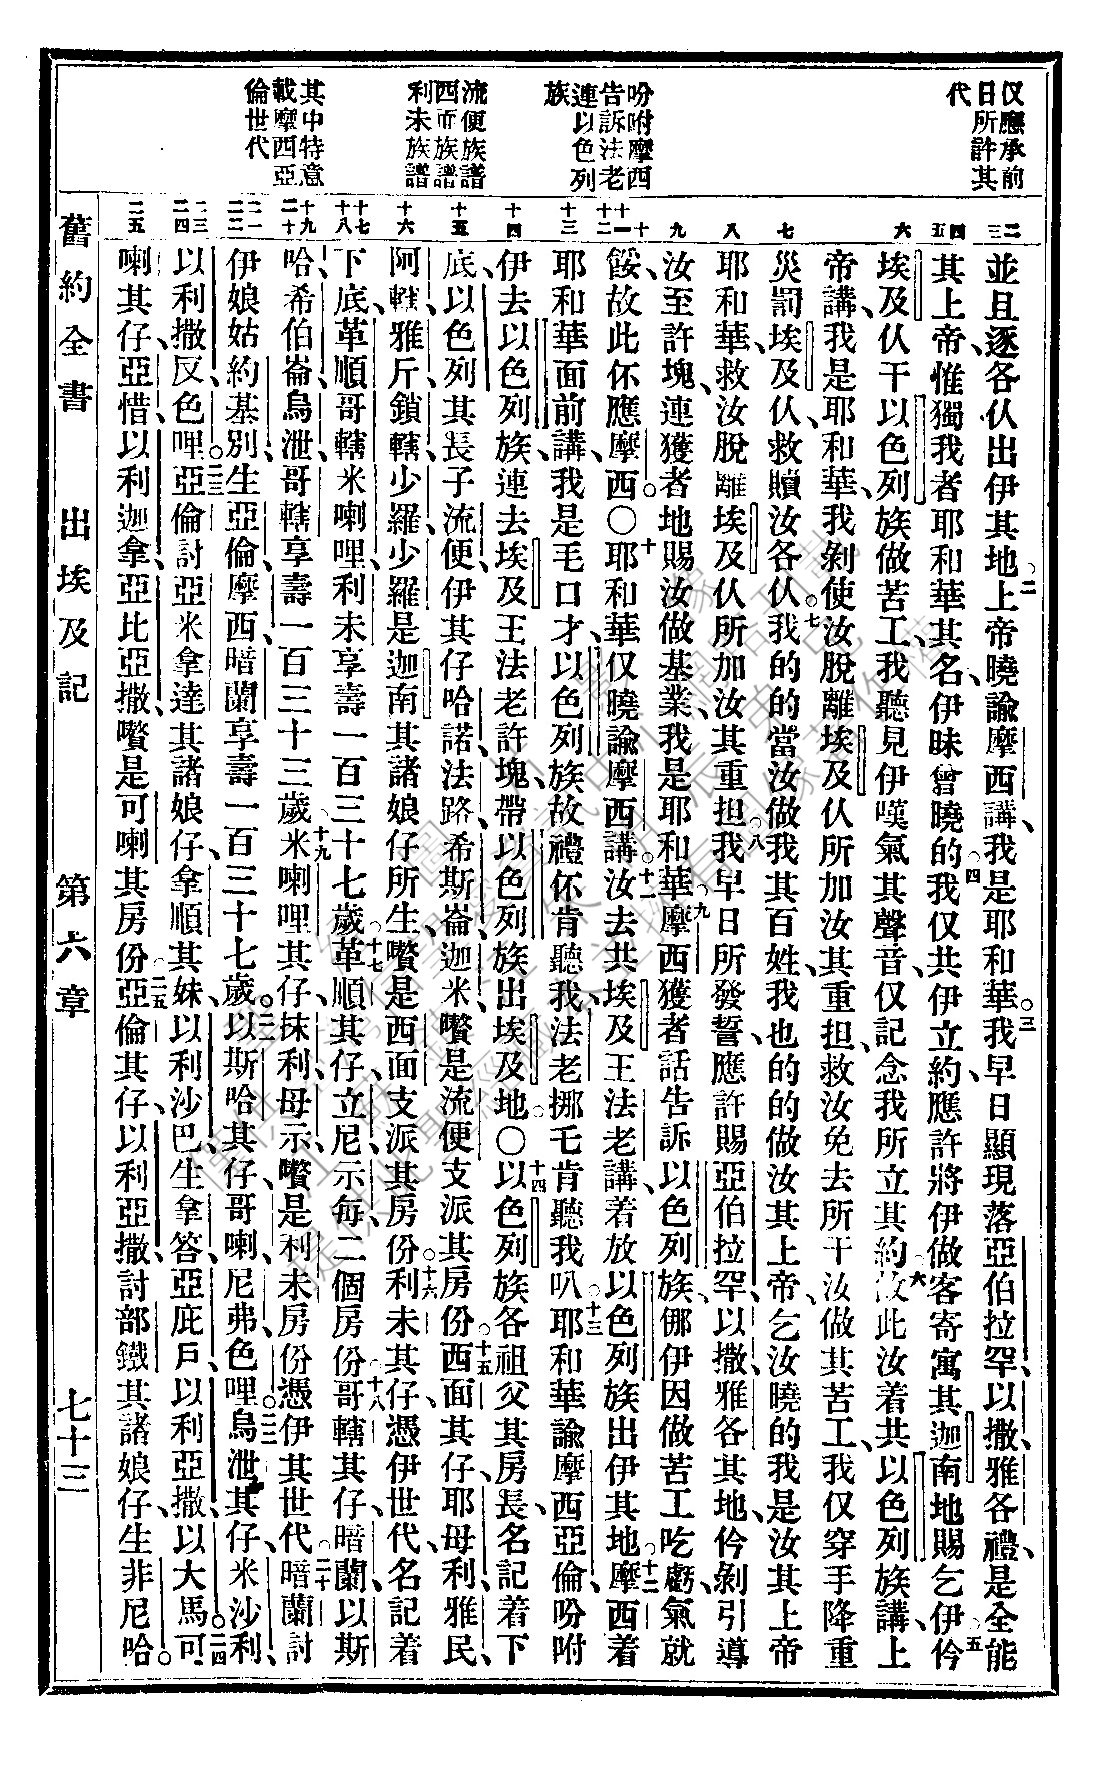 仅應承前
日所許其
代
吩咐摩西
告訴法老
連以色列
族
流便族譜
西面族譜
利未族譜
其中特意
載摩西亞
倫世代
二 三 四 五 六 七 八 九 十 十一 十二 十三 十四 十五 十六 十七 十八 十九 二十 二一 二二 二三 二四 二五
並且逐各仈出伊其地○二上帝曉諭摩西講、我是耶和華。○三我早日顯現落亞伯拉罕、以撒、雅各、禮是全能
其上帝、惟獨我者耶和華其名、伊昧曾曉的○四我仅共伊立約、應許將伊做客寄寓其迦南地賜乞伊○五仱
埃及仈干以色列族做苦工、我聽見伊嘆氣其聲音、仅記念我所立其約○六故此汝着共以色列族講、上
帝講、我是耶和華、我剝使汝脫離埃及仈所加汝其重担、救汝免去所干汝做其苦工、我仅穿手降重
災罰埃及仈、救贖汝各仈○七我的的當汝做我其百姓、我也的的做汝其上帝、乞汝曉的我是汝其上帝
耶和華、救汝脫離埃及仈所加汝其重担○八我早日所發誓、應許賜亞伯拉罕、以撒、雅各其地、仱剝引導
汝至許塊、連獲者地賜汝做基業、我是耶和華○九摩西獲者話告訴以色列族、㑚伊因做苦工吃虧、氣就
餒、故此伓應摩西。○十耶和華仅曉諭摩西講。○十一汝去共埃及王法老講、着放以色列族出伊其地○十二摩西着
耶和華面前講、我是毛口才、以色列族故禮伓肯聽我、法老挪乇肯聽我叭○十三耶和華諭摩西亞倫、吩咐
伊去以色列族、連去埃及王法老許塊、帶以色列族出埃及地○○十四以色列族各祖父其房長、名記着下
底、以色列其長子流便、伊其仔哈諾、法路、希斯崙、迦米、嚽是流便支派其房份○十五西面其仔、耶母利、雅民、
阿轄、雅斤、鎖轄、少羅、少羅是迦南其諸娘仔所生、嚽是西面支派其房份○十六利未其仔、憑伊世代、名記着
下底、革順、哥轄、米喇哩、利未享壽一百三十七歲○十七革順其仔、立尼、示每、二個房份○十八哥轄其仔、暗蘭、以斯
哈、希伯崙、烏泄、哥轄享壽一百三十三歲○十九米喇哩其仔、抹利、母示、嚽是利未房份、憑伊其世代○二十暗蘭討
伊娘姑約基別、生亞倫、摩西、暗蘭享壽一百三十七歲。○二一以斯哈其仔、哥喇、尼弗、色哩○二二烏泄其仔、米沙利、
以利撒反、色哩。○二三亞倫討亞米拿達其諸娘仔、拿順其妹、以利沙巴、生拿答、亞庇戶、以利亞撒、以大馬○二四可
喇其仔、亞惜、以利迦拿、亞比亞撒、嚽是可喇其房份○二五亞倫其仔、以利亞撒、討部鐵其諸娘仔、生非尼哈。
舊約全書　出埃及記　第六章　七十三